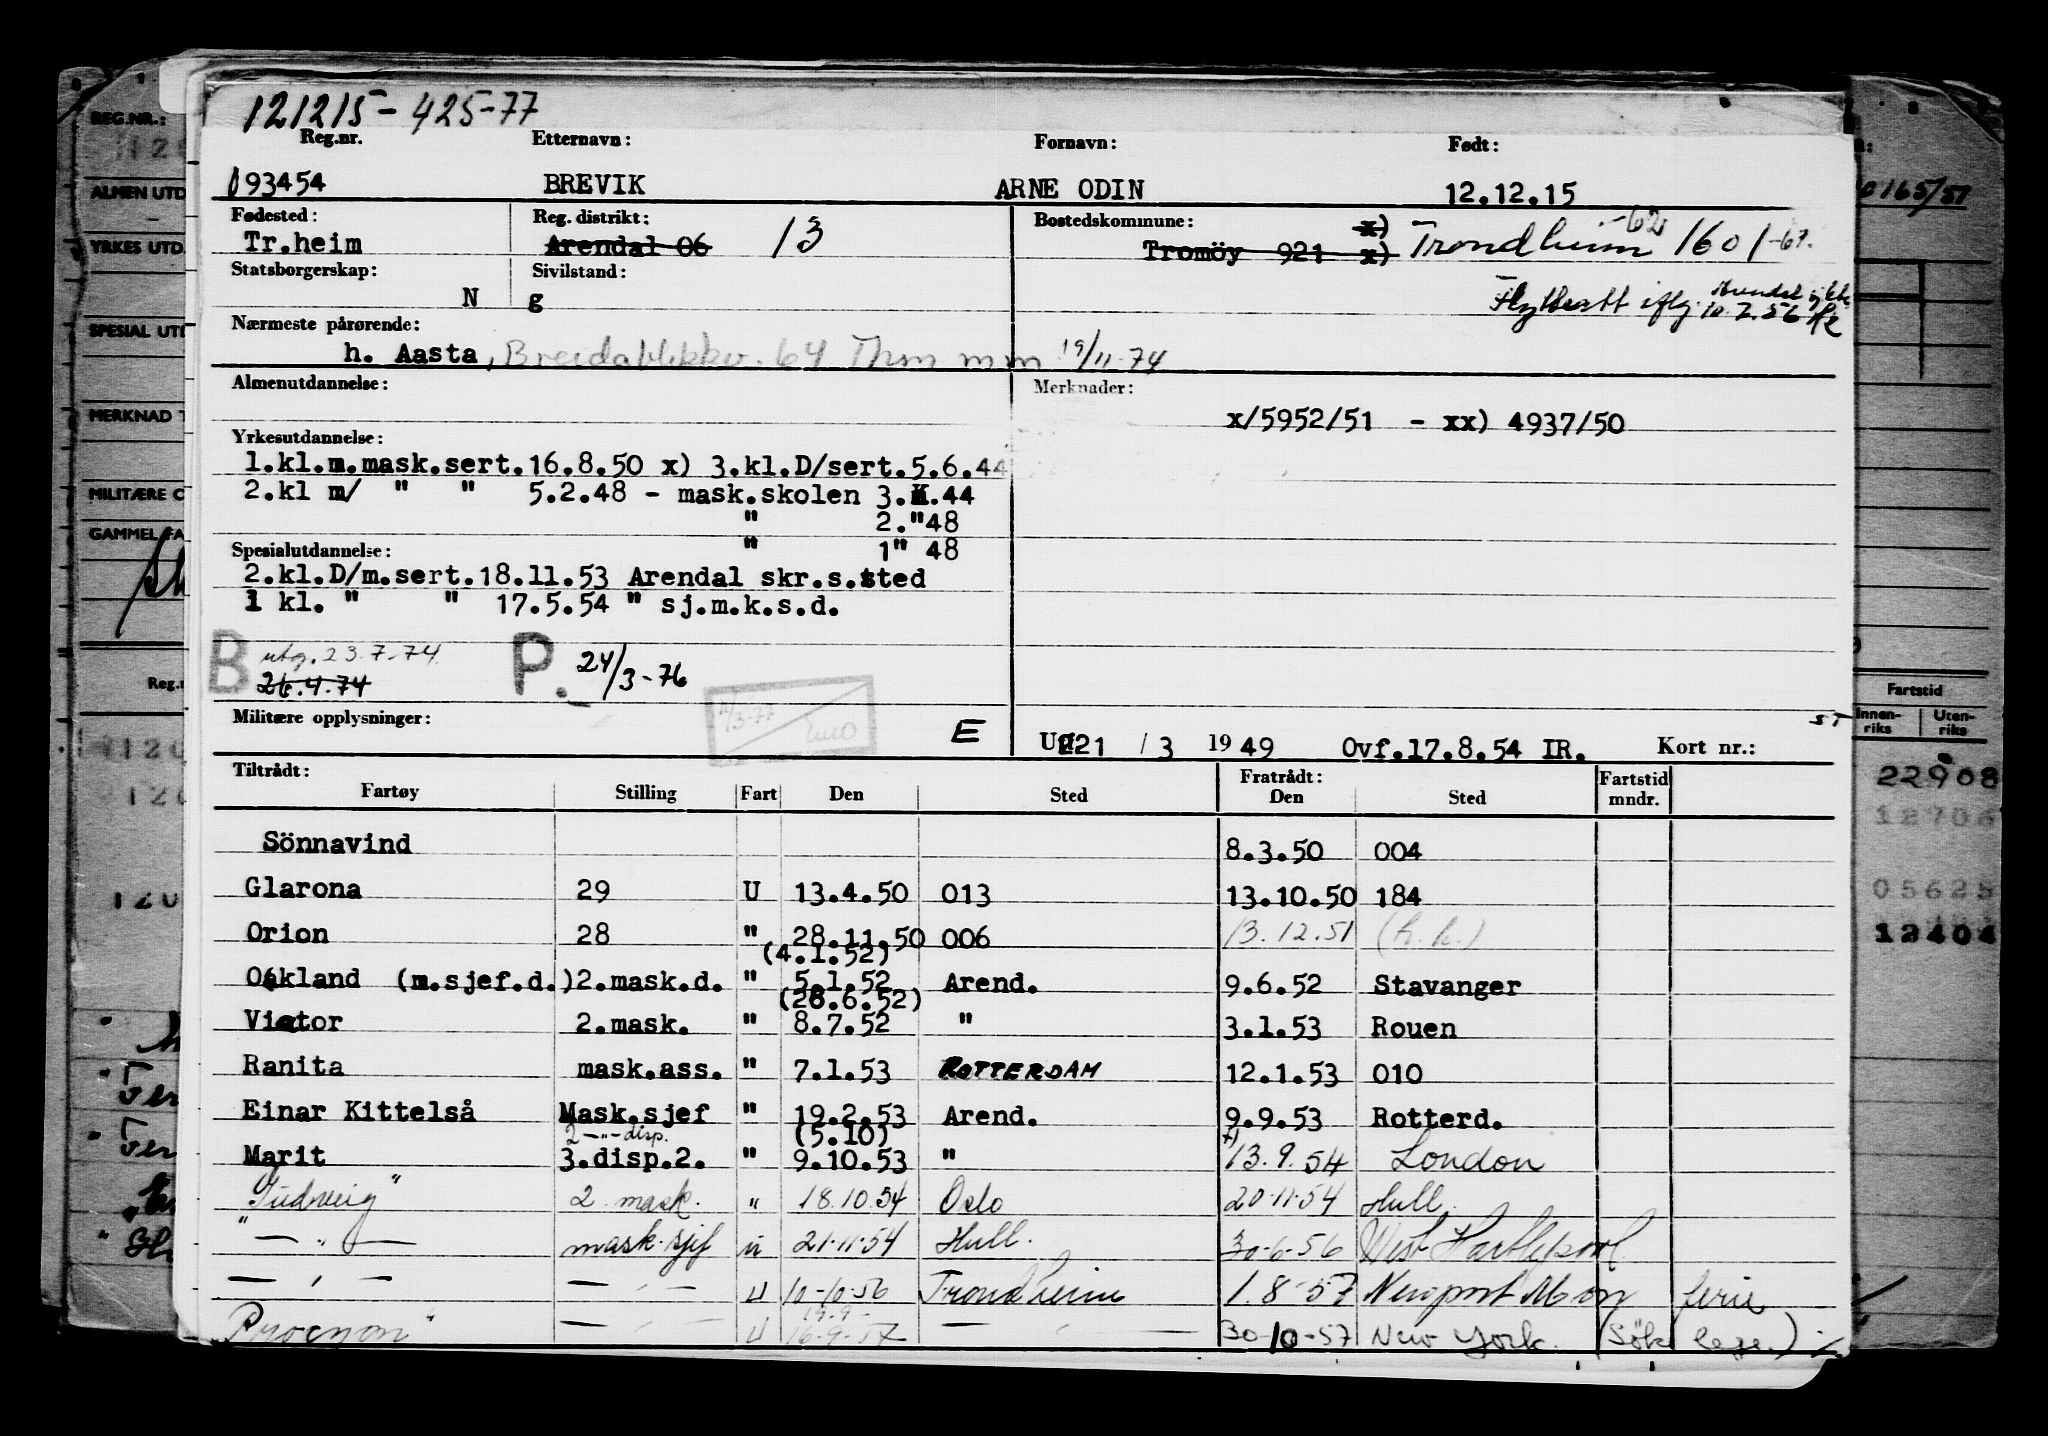 121215 - 425-77
Reg.nr. Etternavn: Fornavn: Født:
093454 BREVIK ARNE ODIN 12.12.15
Fødested: Reg. distrikt: Bostedskommune:
Tr.heim Arendal 06 13 Tromöy 921 x) x) Trondheim -62 1601 -67.
Statsborgerskap: Sivilstand:
N g
Nærmeste pårørende:
h. Aasta, Breidablikkv. 64 19/11-74
Almenutdannelse: Merknader:
x/5952/51 - xx) 4937/50
Yrkesutdannelse:
1.kl.m.mask.sert.16.8.50 x) 3.kl.D/sert.5.6.44
2.kl m/ " " 5.2.48 - mask.skolen 3.K.44
" 2."48
Spesialutdannelse: " 1" 48
2.kl.D/m.sert.18.11.53 Arendal skr.s.sted
1 kl. " " 17.5.54 " sj.m.k.s.d.
B utg. 23.7.74. P. 24/3-76
26.4.74
Militære opplysninger: E
21 / 3 19 49 Ovf.17.8.54 IR. Kort nr.:
Tiltrådt: Fratrådt: Fartstid
Fartøy Stilling Fart Den Sted Den Sted mndr.
Sönnavind 8.3.50 004
Glarona 29 U 13.4.50 013 13.10.50 184
Orion 28 " 28.11.50 006 13.12.51 (h.h.)
(4.1.52)
Oakland (m.sjef.d.) 2.mask.d. " 5.1.52 Arend. 9.6.52 Stavanger
(28.6.52)
Victor 2.mask. " 8.7.52 " 3.1.53 Rouen
Ranita mask.ass. " 7.1.53 ROTTERDAM 12.1.53 010
Einar Kittelså Mask.sjef " 19.2.53 Arend. 9.9.53 Rotterd.
2 -"- disp. (5.10)
Marit 3.disp.2. " 9.10.53 " 13.9.54 London
2 mask. " 18.10.54 Oslo 20.11.54 Hull.
" — " — mask.sjef u 21.11.54 Hull. 30-6-56 West Hartlepool
— " — — " — U 10-10-56 Trondheim 1.8-57 Newport Mon ferie
19.9-
"Procyon" — " — U 16-9-57 — " — 30-10-57 New York. (Søke lege.) ·/.
REG.NR.:
ALMEN UTD
YRKES UTD.
SPESIAL UTD
MERKNAD T
MILITÆRE O
GAMMEL FA
Reg.n
0165/51
Fartstid
Innen-riks Uten-riks
22908
12706
05625
12404